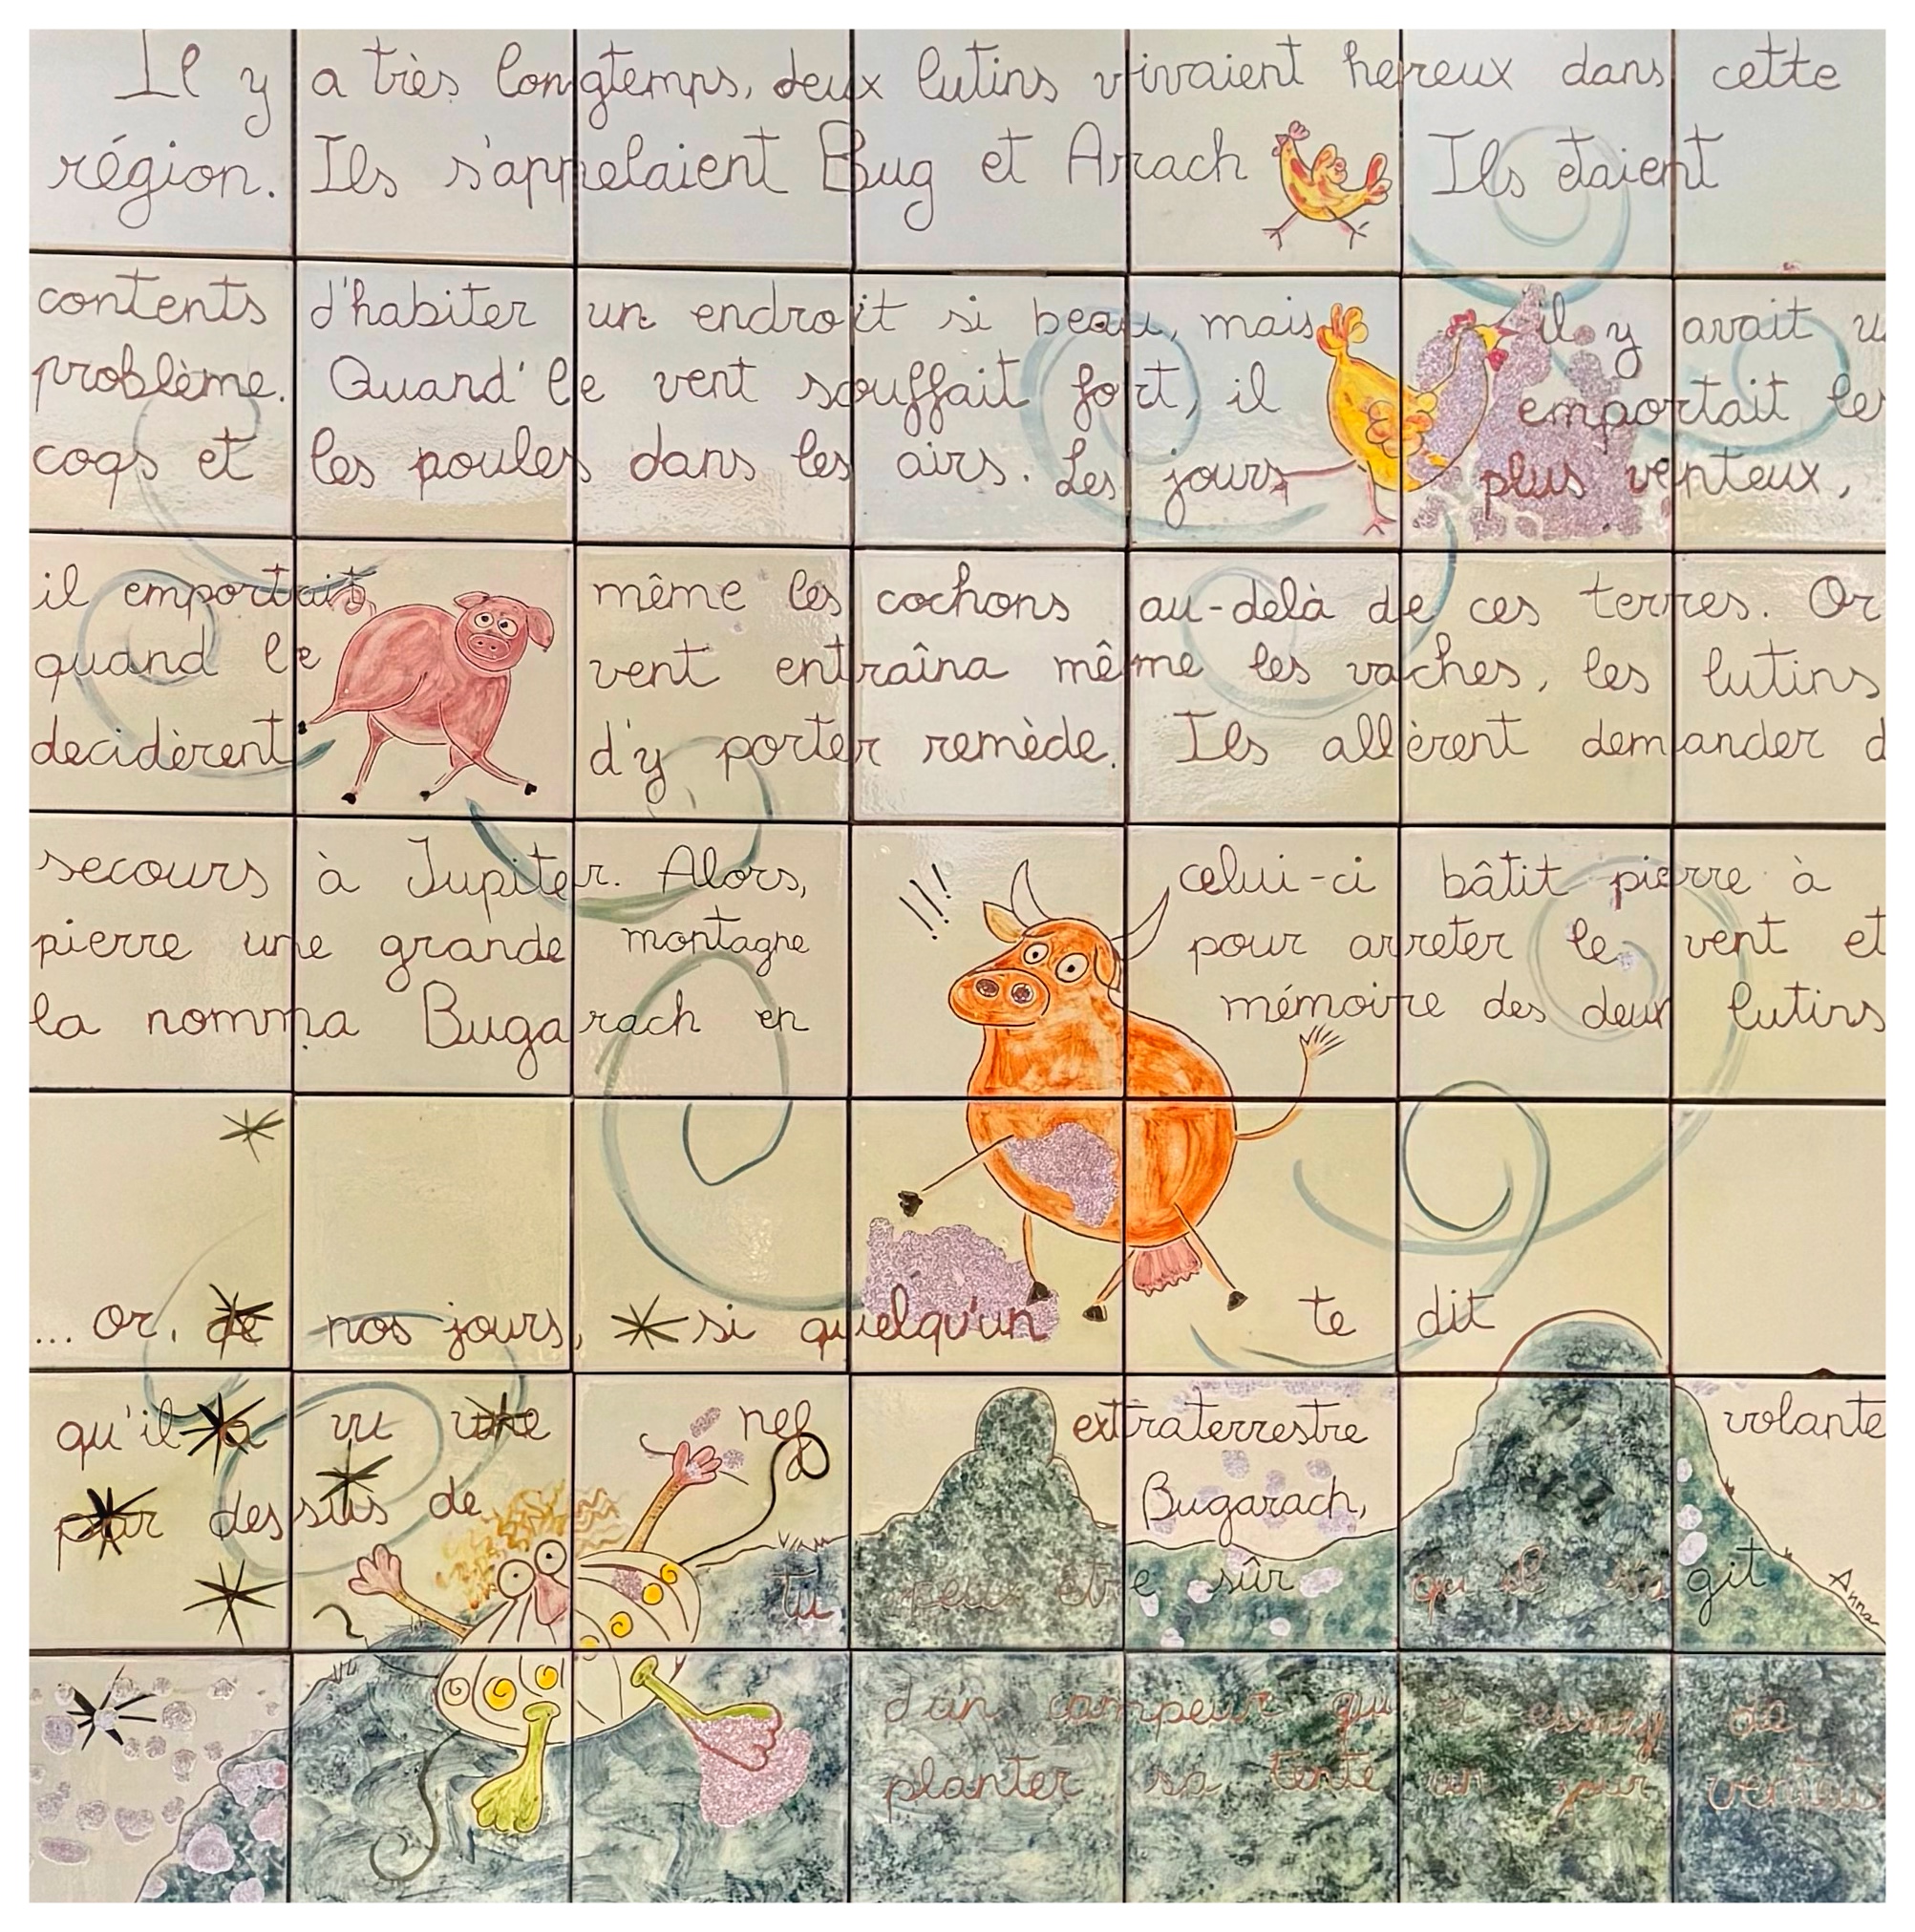 Il y a très longtemps, deux lutins vivaient hereux dans cette
région. Ils s'appelaient Bug et Arach Ils etaient
contents d'habiter un endroit si beau, mais il y avait u
problème. Quand' le vent souffait fort, il emportait les
coqs et les poules dans les airs. Les jours plus venteux,
il emportait même les cochons au-delà de ces terres. Or
quand le vent entraîna même les vaches, les lutins
decidèrent d'y porter remède. Ils allèrent demander d
secours à Jupiter. Alors, celui-ci bâtit pierre à
pierre une grande montagne pour arreter le vent et
la nomma Bugarach en mémoire des deux lutins
... or, de nos jours, si quelqu'un te dit
qu'il a vu une nef extraterrestre volante
par dessus de Bugarach,
tu peux être sûr qu'il s'agit
Anna
d'un campeur qui a essayé de
planter sa tente un jour venteux